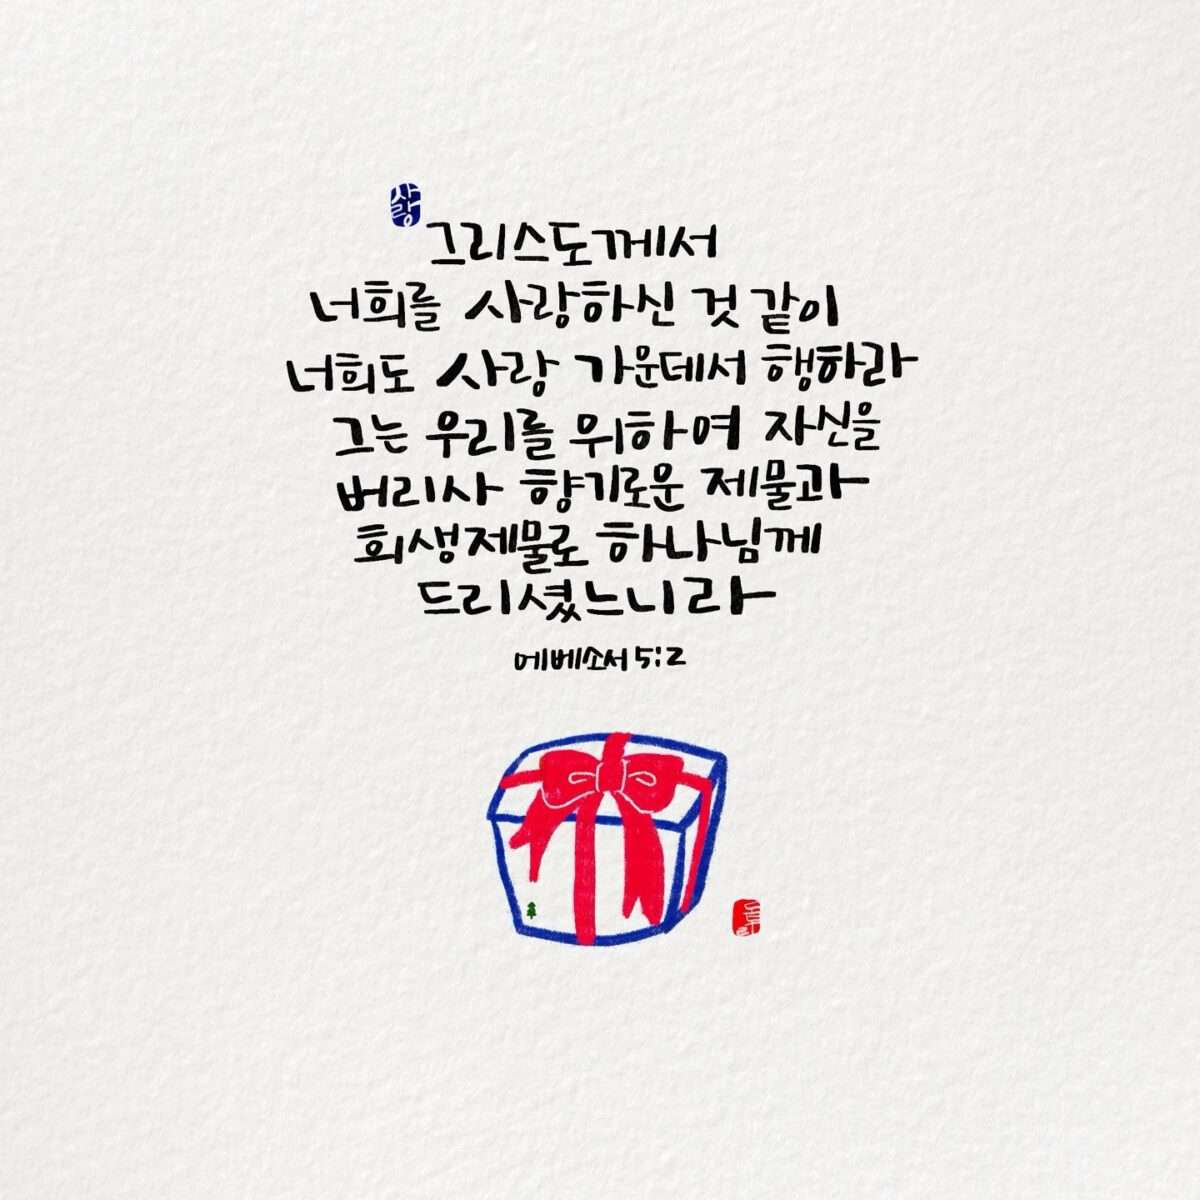 사랑
그리스도께서
너희를 사랑하신 것 같이
너희도 사랑 가운데서 행하라
그는 우리를 위하여 자신을
버리사 향기로운 제물과
희생제물로 하나님께
드리셨느니라
에베소서 5:2